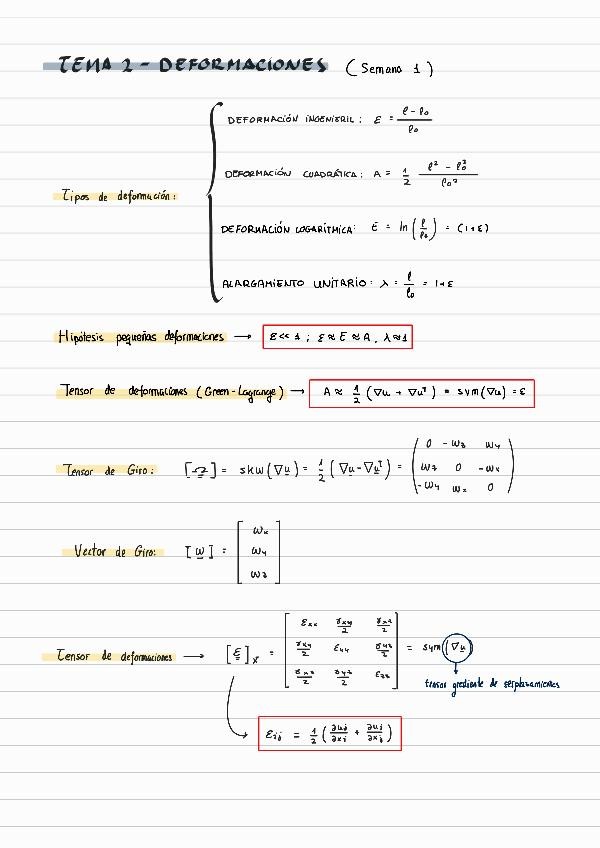 TEMA 2 - DEFORMACIONES (Semana 1)
Tipos de deformación:
DEFORMACIÓN INGENIERIL: ε = (ℓ - ℓ₀) / ℓ₀
DEFORMACIÓN CUADRÁTICA: A = 1/2 (ℓ² - ℓ₀²) / ℓ₀²
DEFORMACIÓN LOGARÍTMICA: E = ln(ℓ/ℓ₀) = (1+ε)
ALARGAMIENTO UNITARIO: λ = ℓ/ℓ₀ = 1+ε
Hipótesis pequeñas deformaciones → ε << 1 ; ε ≈ E ≈ A, λ ≈ 1
Tensor de deformaciones (Green-Lagrange) → A ≈ 1/2 (∇u + ∇uᵀ) = sym(∇u) = ε
Tensor de Giro: [Ω] = skw(∇u) = 1/2 (∇u - ∇uᵀ) =
0 -ωz ωy
ωz 0 -ωx
-ωy ωx 0
Vector de Giro: [ω] =
ωx
ωy
ωz
Tensor de deformaciones → [ε]x =
εxx γxy/2 γxz/2
γxy/2 εyy γyz/2
γxz/2 γyz/2 εzz
= sym(∇u)
tensor gradiente de desplazamientos
εij = 1/2 (∂uj/∂xi + ∂ui/∂xj)